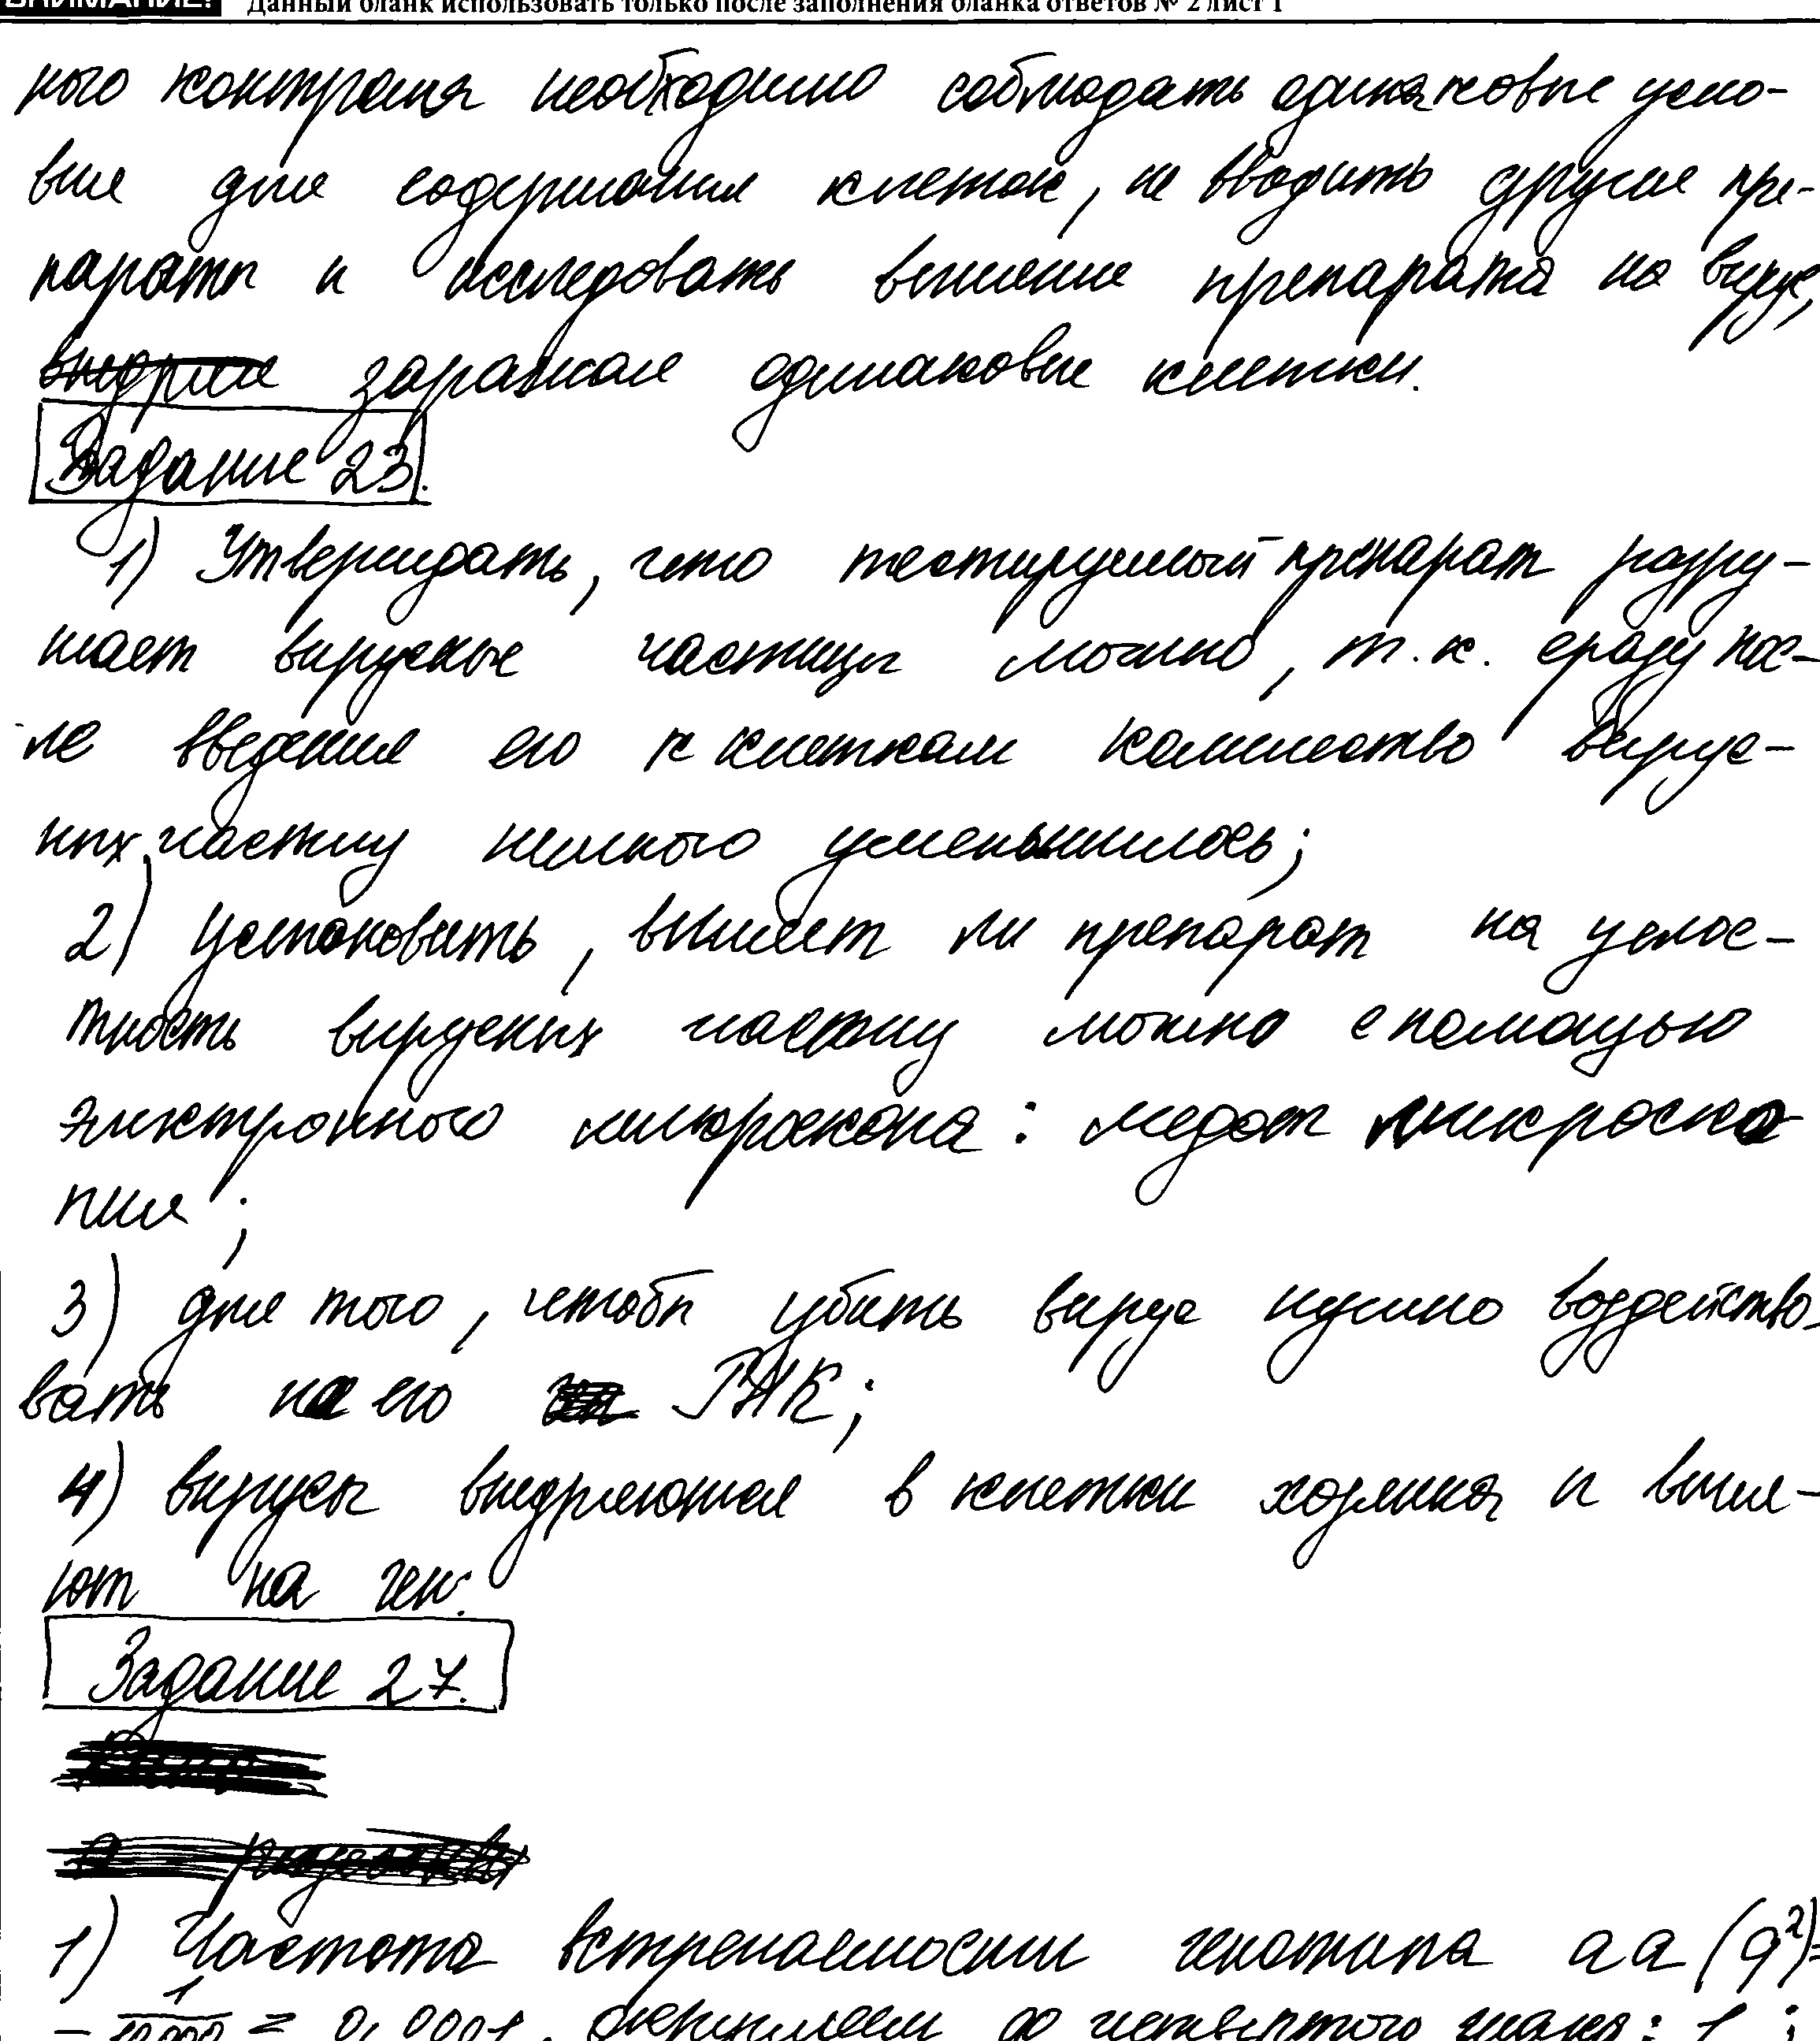 ВНИМАНИЕ! Данный бланк использовать только после заполнения бланка ответов № 2 лист 1
ного контроля необходимо соблюдать одинаковые усло-
вия для содержания клеток, не вводить другие пре-
параты и исследовать влияние препарата на вирус,
заражая одинаковые клетки.
Задание 23.
1) Утверждать, что тестируемый препарат разру-
шает вирусные частицы можно, т.к. сразу пос-
ле введения его к клеткам количество вирус-
ных частиц немного уменьшилось;
2) Установить, влияет ли препарат на целос-
тность вирусных частиц можно с помощью
электронного микроскопа: метод микроско
пия;
3) для того, чтобы убить вирус нужно воздейство-
вать на его РНК;
4) вирусы внедряются в клетки хозяина и влия-
ют на ген.
Задание 27.
1) Частота встречаемости генотипа aa (q²)=
= 1/10000 = 0,0001, округляем до четвертого знака: 1;